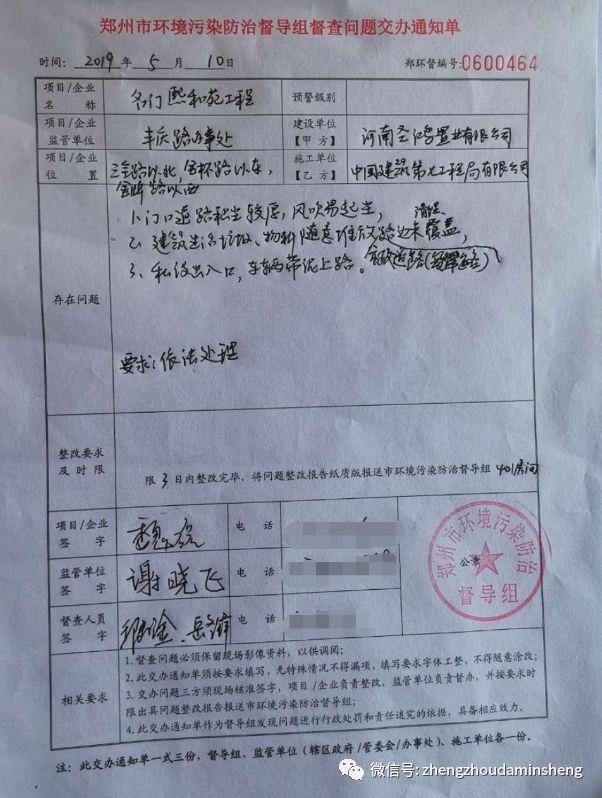 郑州市环境污染防治督导组督查问题交办通知单
时间：2019年5月10日 郑环督编号:0600464
项目/企业名称 名门熙和苑工程 预警级别
项目/企业监管单位 丰庆路办事处 建设单位【甲方】 河南圣鸿置业有限公司
项目/企业位置 三全路以北，金杯路以东，金牌路以西 施工单位【乙方】 中国建筑第七工程局有限公司
存在问题
1、门口道路积尘较厚，风吹易起尘，
2、建筑生活垃圾、物料随意堆放路边未覆盖，清运
3、私设出入口，车辆带泥上路。
要求：依法处理
整改要求及时限
限3日内整改完毕，将问题整改报告纸质版报送市环境污染防治督导组401房间
项目/企业签字 电话
监管单位签字 谢晓飞 电话 公章
督查人员签字 电话
郑州市环境污染防治督导组
相关要求
1.督查问题必须保留现场影像资料，以供调阅；
2.此交办通知单须按要求填写，无特殊情况不得漏项，填写要求字体工整，不得随意涂改；
3.交办问题三方须现场核准签字，项目/企业负责整改，监管单位负责督办，并按要求时
限出具问题整改报告报送市环境污染防治督导组；
4.此交办通知单作为督导组发现问题进行行政处罚和责任追究的依据，具备相应效力。
注：此交办通知单一式三份，督导组、监管单位（辖区政府/管委会/办事处）、施工单位各一份。
微信号: zhengzhoudaminsheng